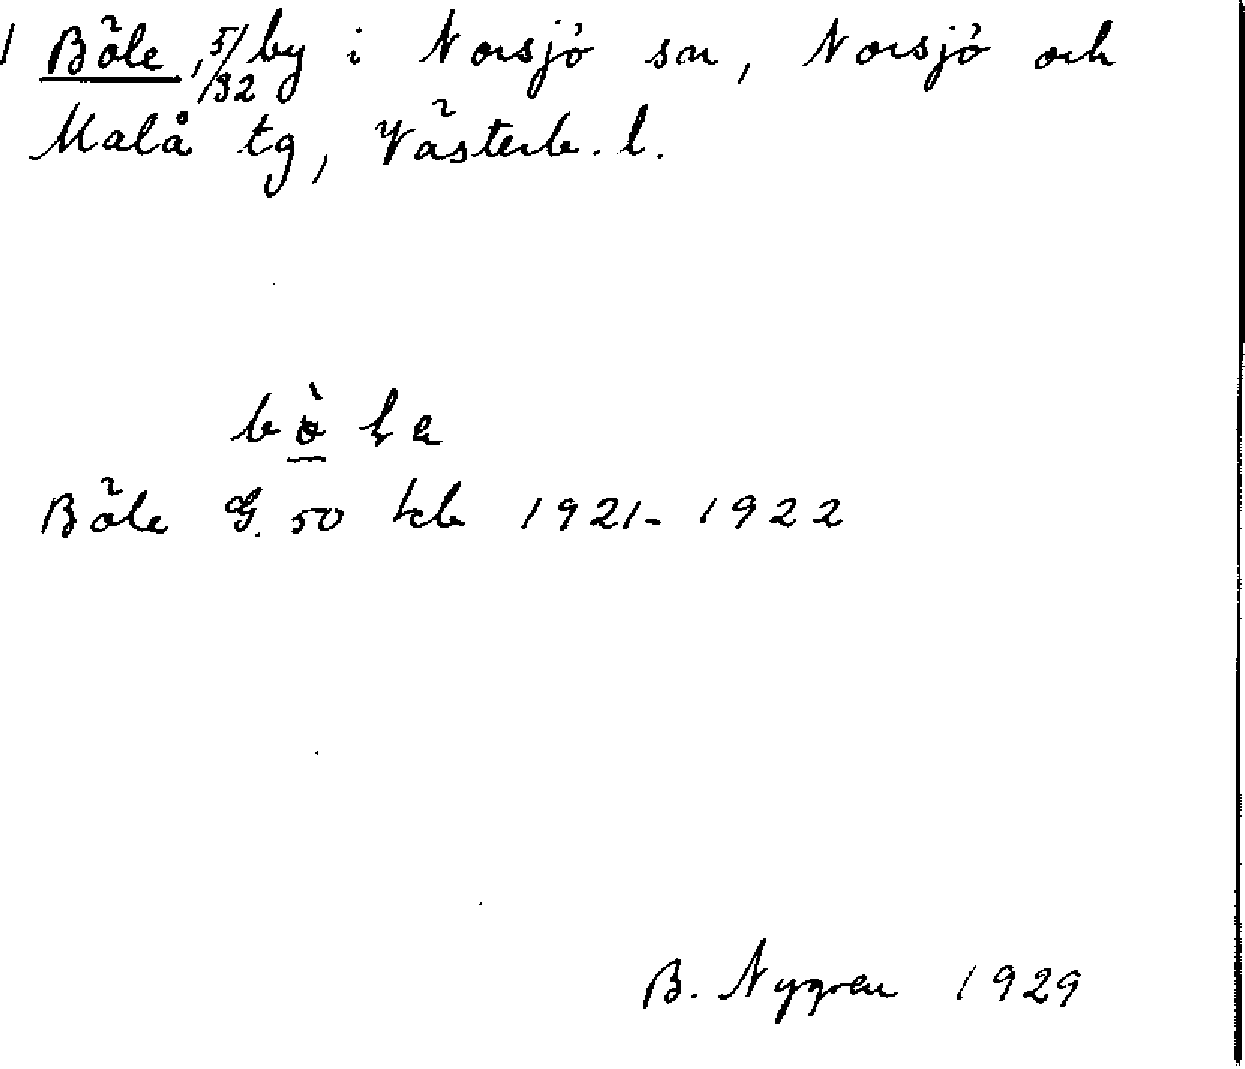 1 Böle, 5/32 by i Norsjö sn, Norsjö och
Malå tg, Västerb. l.
Böle G. 50 kb 1921-1922
B. Nygren 1929